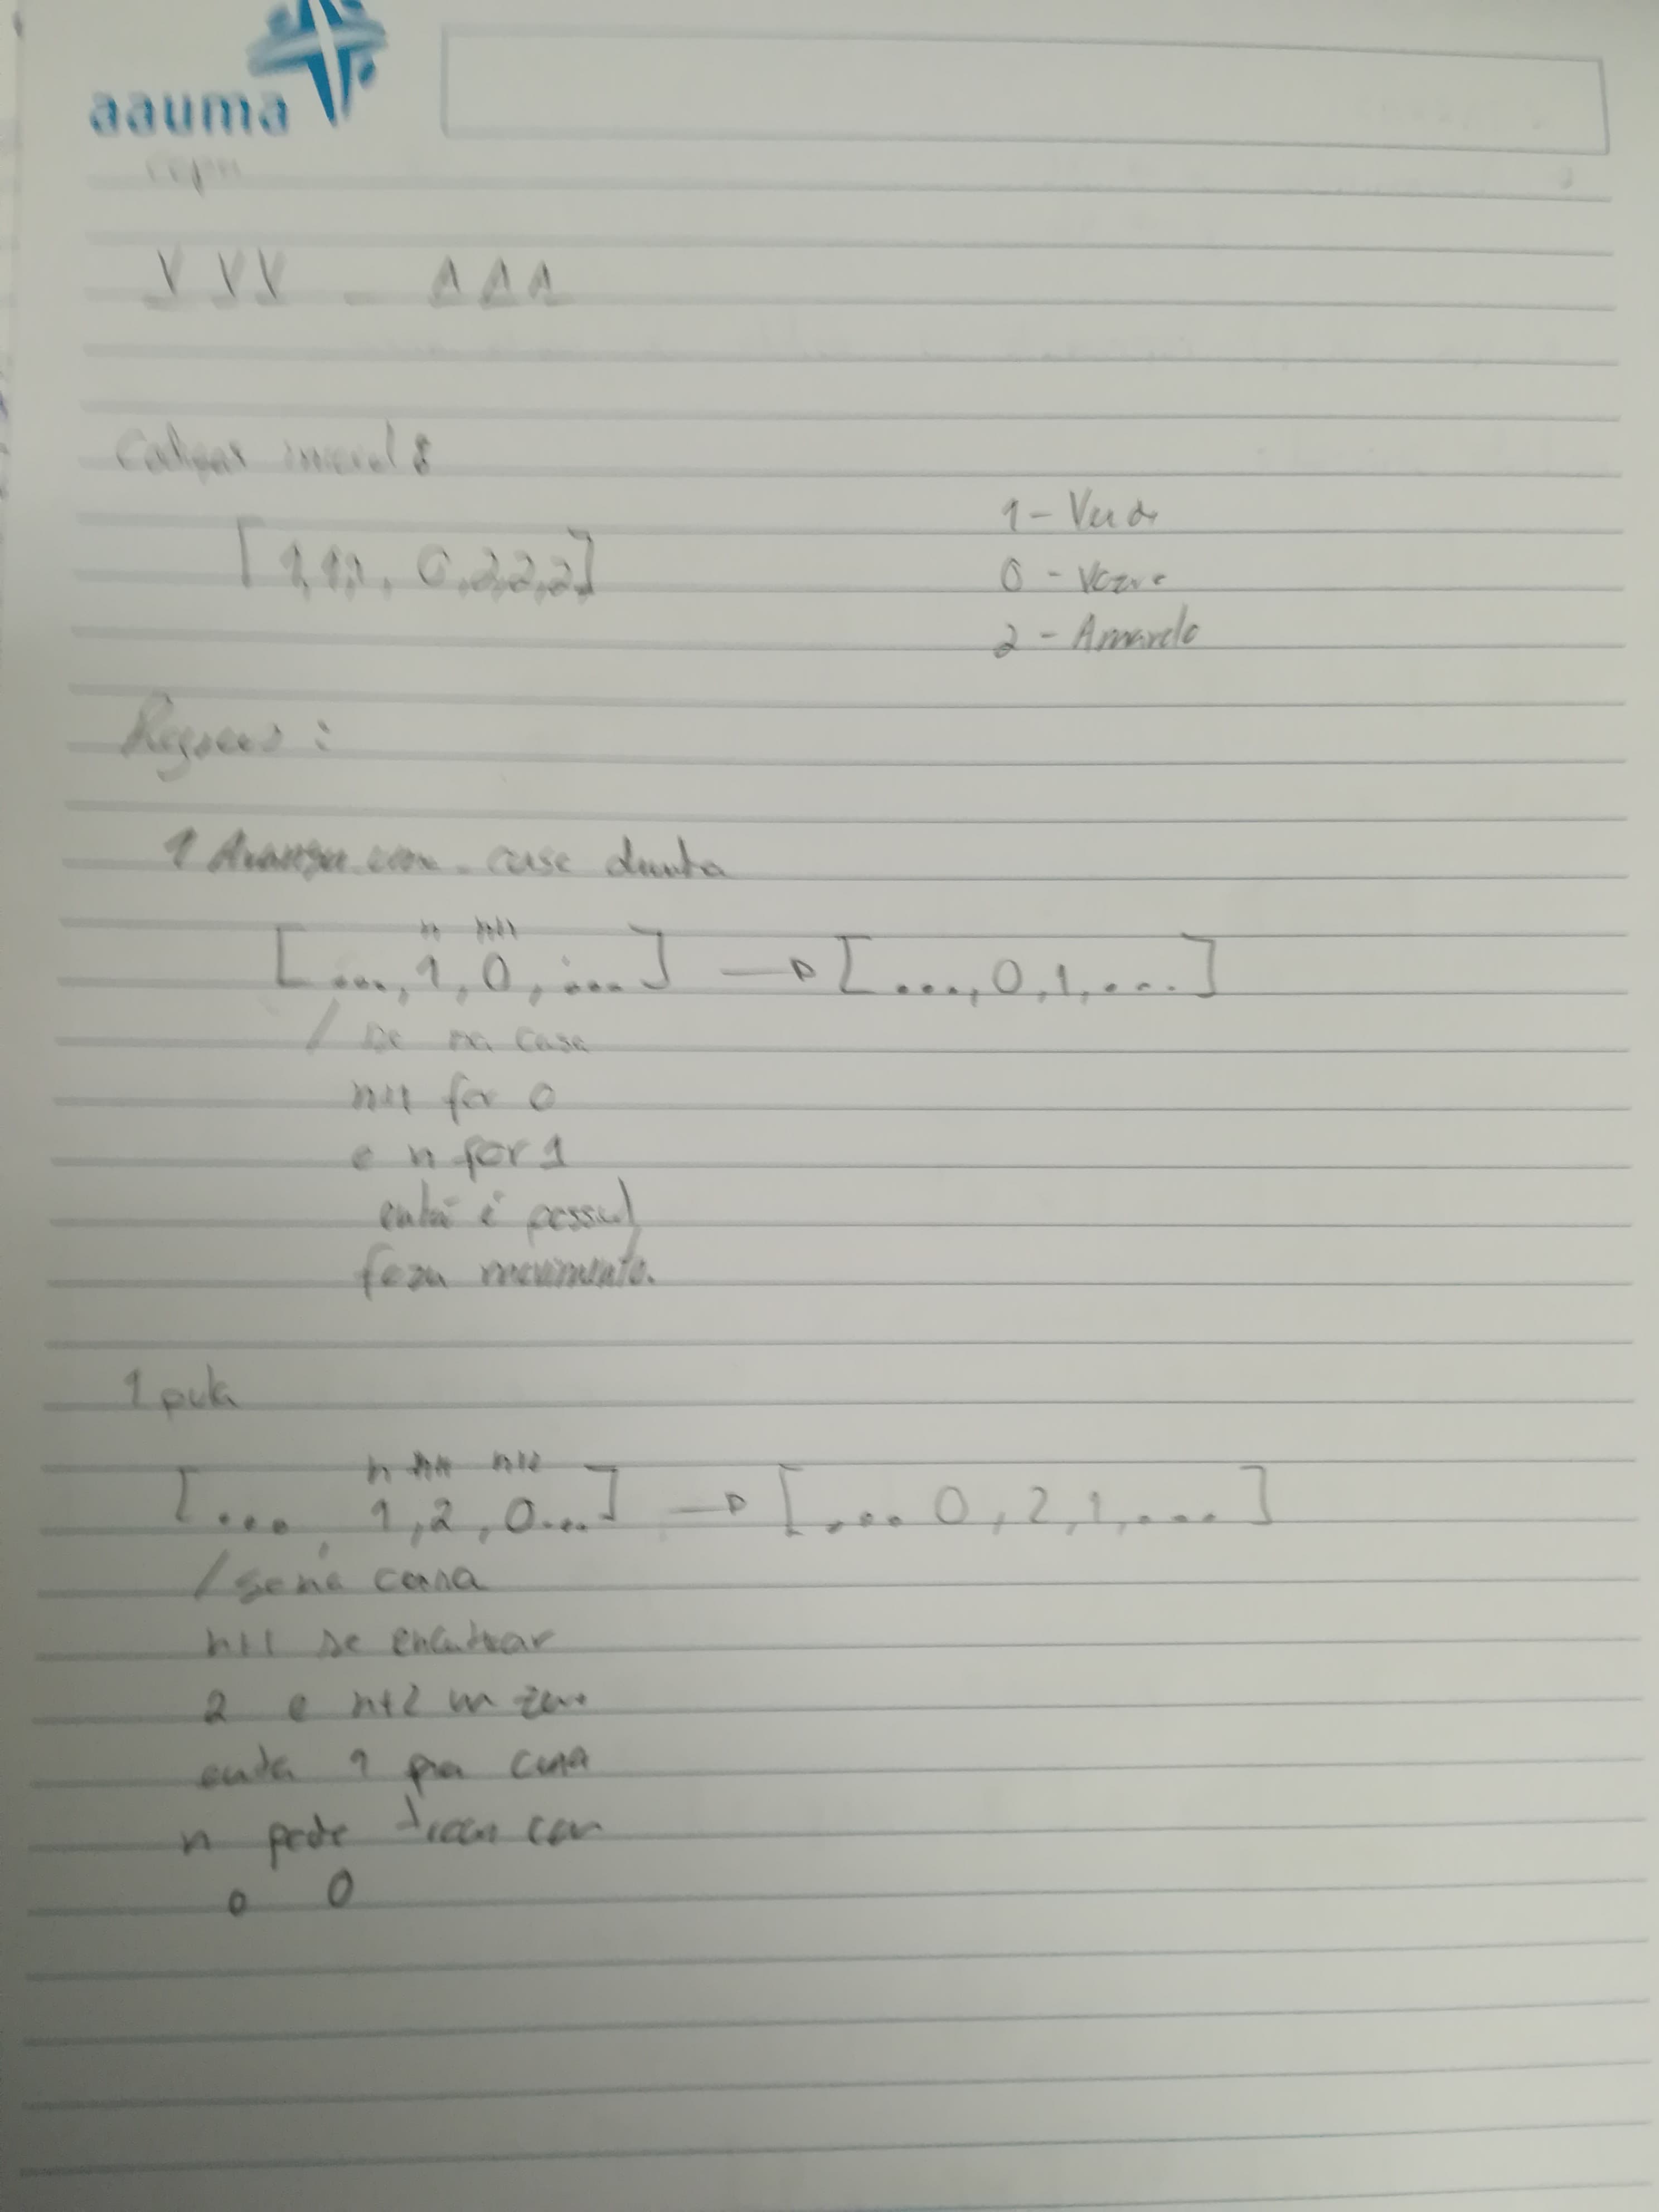 aauma
V V V _ A A A
[1,1,1, 0,2,2,2]
1 - Verde
0 - Vazio
2 - Amarelo
Regras:
1 Avança uma casa
n n+1
[...,1,0,...] → [...,0,1,...]
/ se na casa
n+1 for 0
e n for 1
então é possivel
fazer movimento.
1 pula
n n+1 n+2
[..., 1,2,0...] → [,... 0,2,1,...]
/ se na casa
n+1 se encontrar
2 e n+2 um zero
então 1 na casa
n pode trocar com
o 0